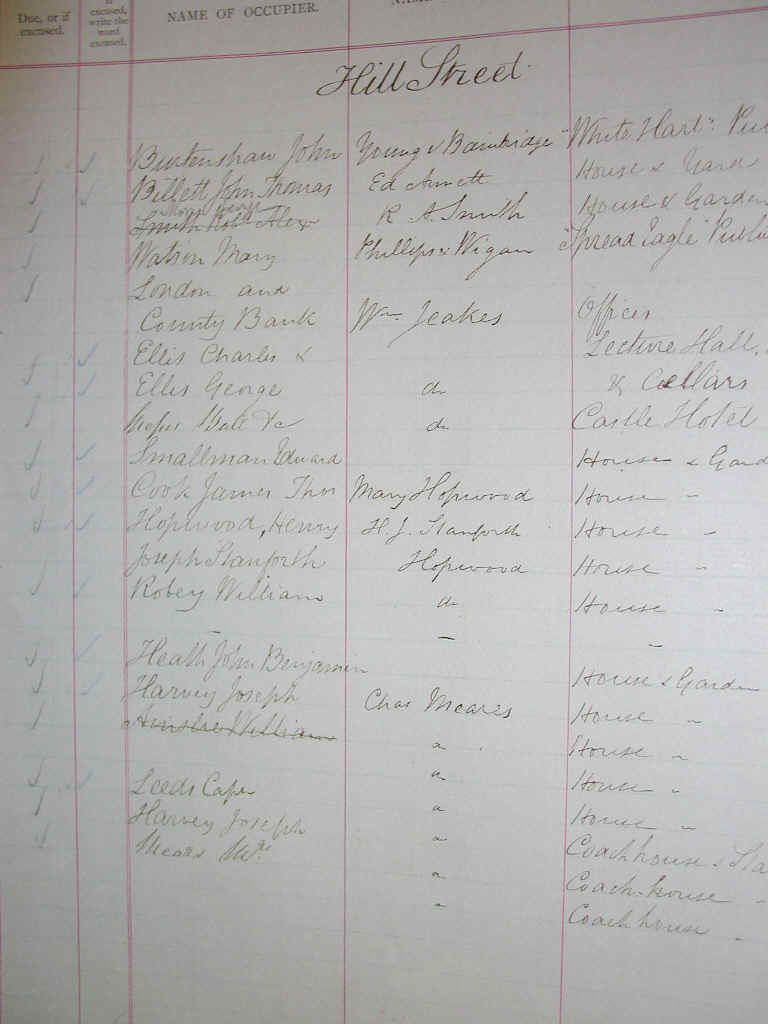 Due, or if excused.
If excused, write the word excused.
NAME OF OCCUPIER.
NAME
Hill Street
Burtenshaw John Young & Bainbridge "White Hart" Pu
Billett John Thomas Ed House & Yard
Smith Alex R A. Smith House & Garden
Watson Mary Phillips & Wigan "Spread Eagle" Publi
London and
County Bank Wm Jeakes Offices
Ellis Charles & Lecture Hall,
Ellis George do & Cellars
do Castle Hotel
Smallman Edward House & Gard
Cook James Thos Mary Hopwood House "
Hopwood, Henry H. J. Stanforth House "
Joseph Stanforth Hopwood House "
Robey William do House "
Heath John Benjamin House & Garden
Harvey Joseph Chas Meares House "
Ainslie William " House "
" House "
Leeds " House "
Harvey Joseph " Coachhouse & Sta
Mears " Coach-house "
" Coachhouse "